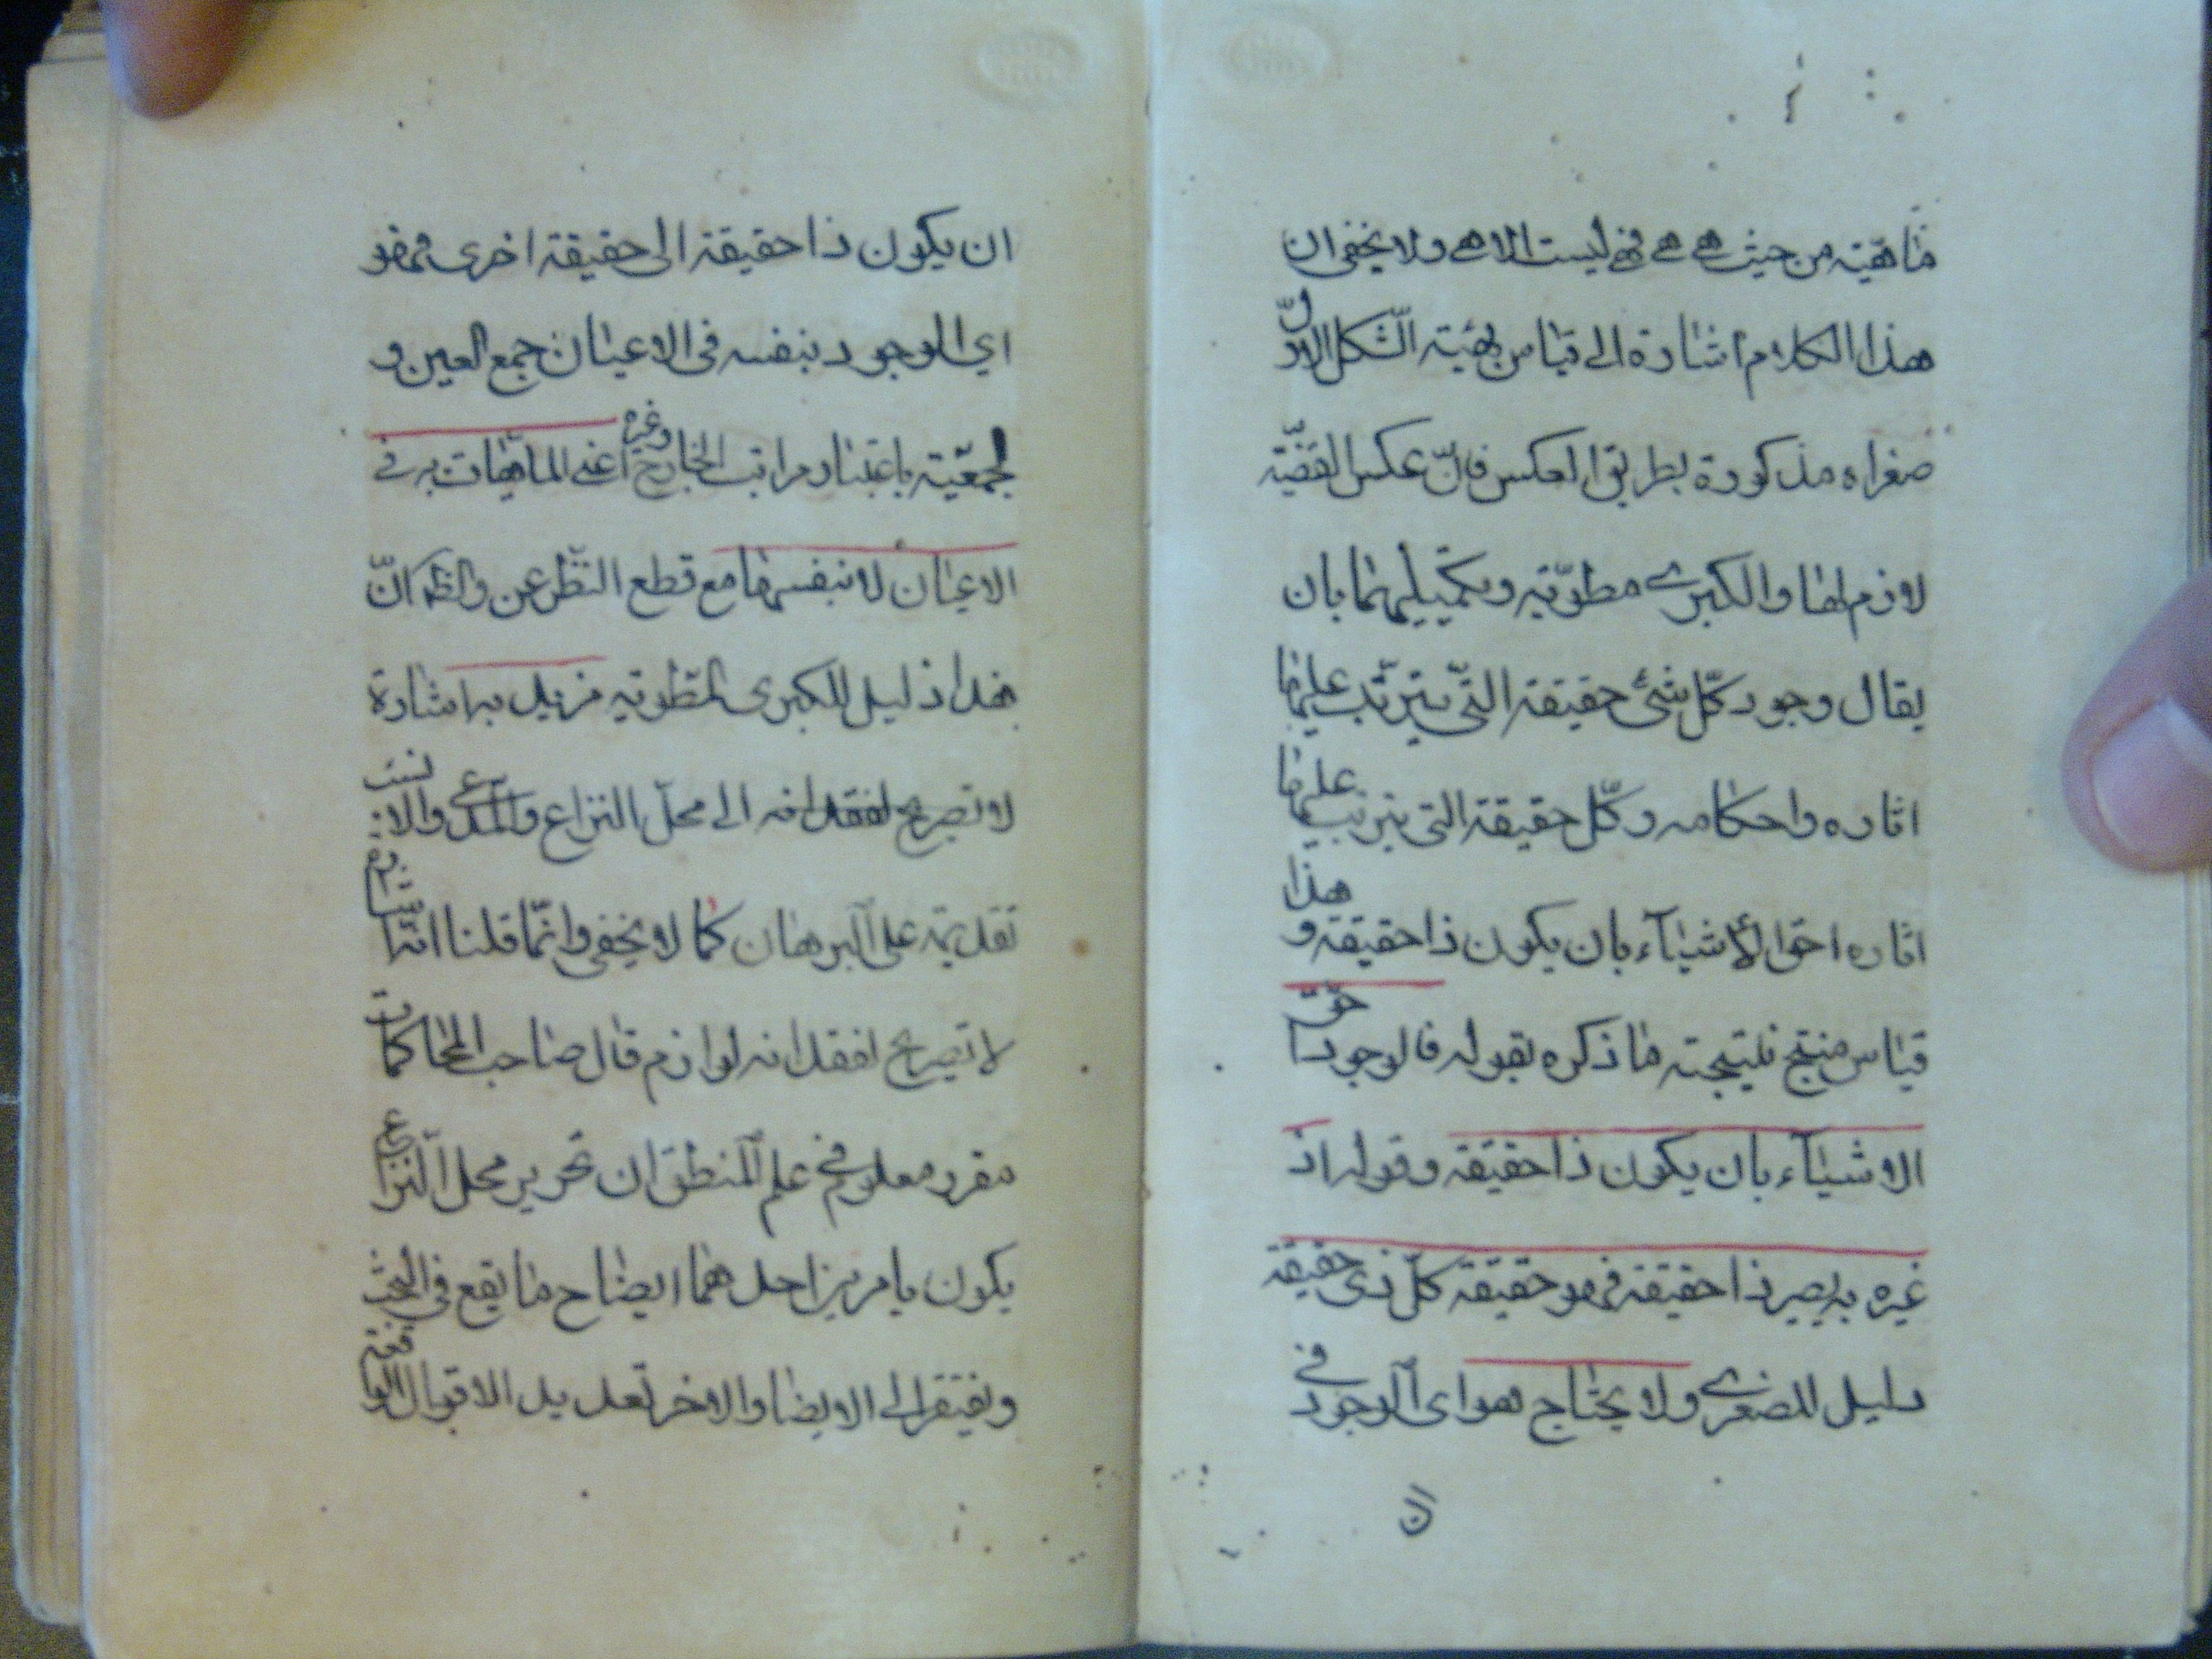 ماهية من حيث هي هي فهي ليست الا هي ولا يخفى ان
هذا الكلام اشارة الى قياس بهيئة الشكل الاول
صغراه مذكورة بطريق العكس فان عكس القضية
لازم لها والكبرى مطوية وتكميلهما بان
يقال وجود كل شئ حقيقة التي يترتب عليها
اثاره واحكامه وكل حقيقة التي يترتب عليها
اثاره احق الأشياء بان يكون ذا حقيقة و هذا
قياس منتج نتيجته ما ذكره بقوله فالوجود احق
الاشياء بان يكون ذا حقيقة وقوله اذ
غيره به يصير ذا حقيقة فهو حقيقة كل ذى حقيقة
دليل للصغرى ولا يحتاج هو اى الوجود في
ان
ان يكون ذا حقيقة الى حقيقة اخرى فهو
اي الوجود بنفسه في الاعيان جمع العين و
لجمعية باعتبار مراتب الخارج وغيره اعنى الماهيات به في
الاعيان لا بنفسها مع قطع النظر عن والظ ان
هذا دليل للكبرى المطوية مزيل به اشارة
لا تصريح لفقدانه الى محل النزاع والمدعى والانسب
تقديمه على البرهان كما لا يخفى وانما قلنا اشارة
لا تصريح لفقدانه لوازم قال صاحب المحاكمات
مقرر معلوم في علم المنطق ان تحرير محل النزاع
يكون بامرين احدهما ايضاح ما يقع في البحث
ويفتقر الى الايضا والاخر تعديل الاقوال